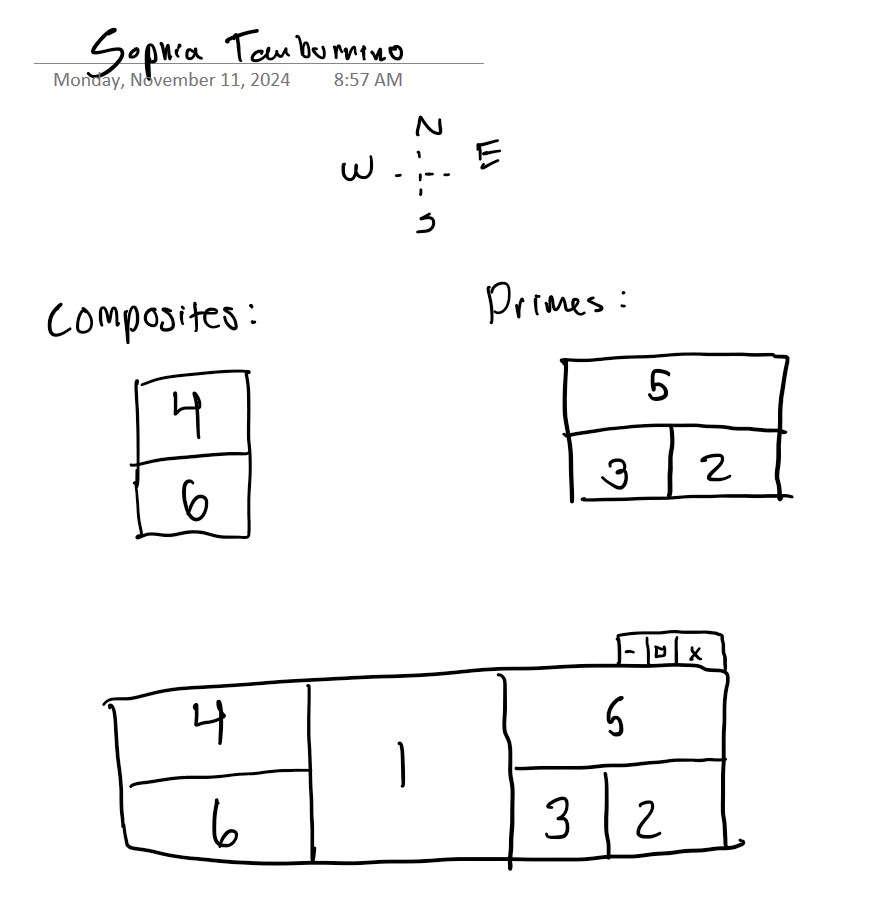 Sophia Tamburrino
Monday, November 11, 2024 8:57 AM
N
W E
S
Composites: Primes:
4 5
6 3 2
- □ x
4 1 5
6 3 2